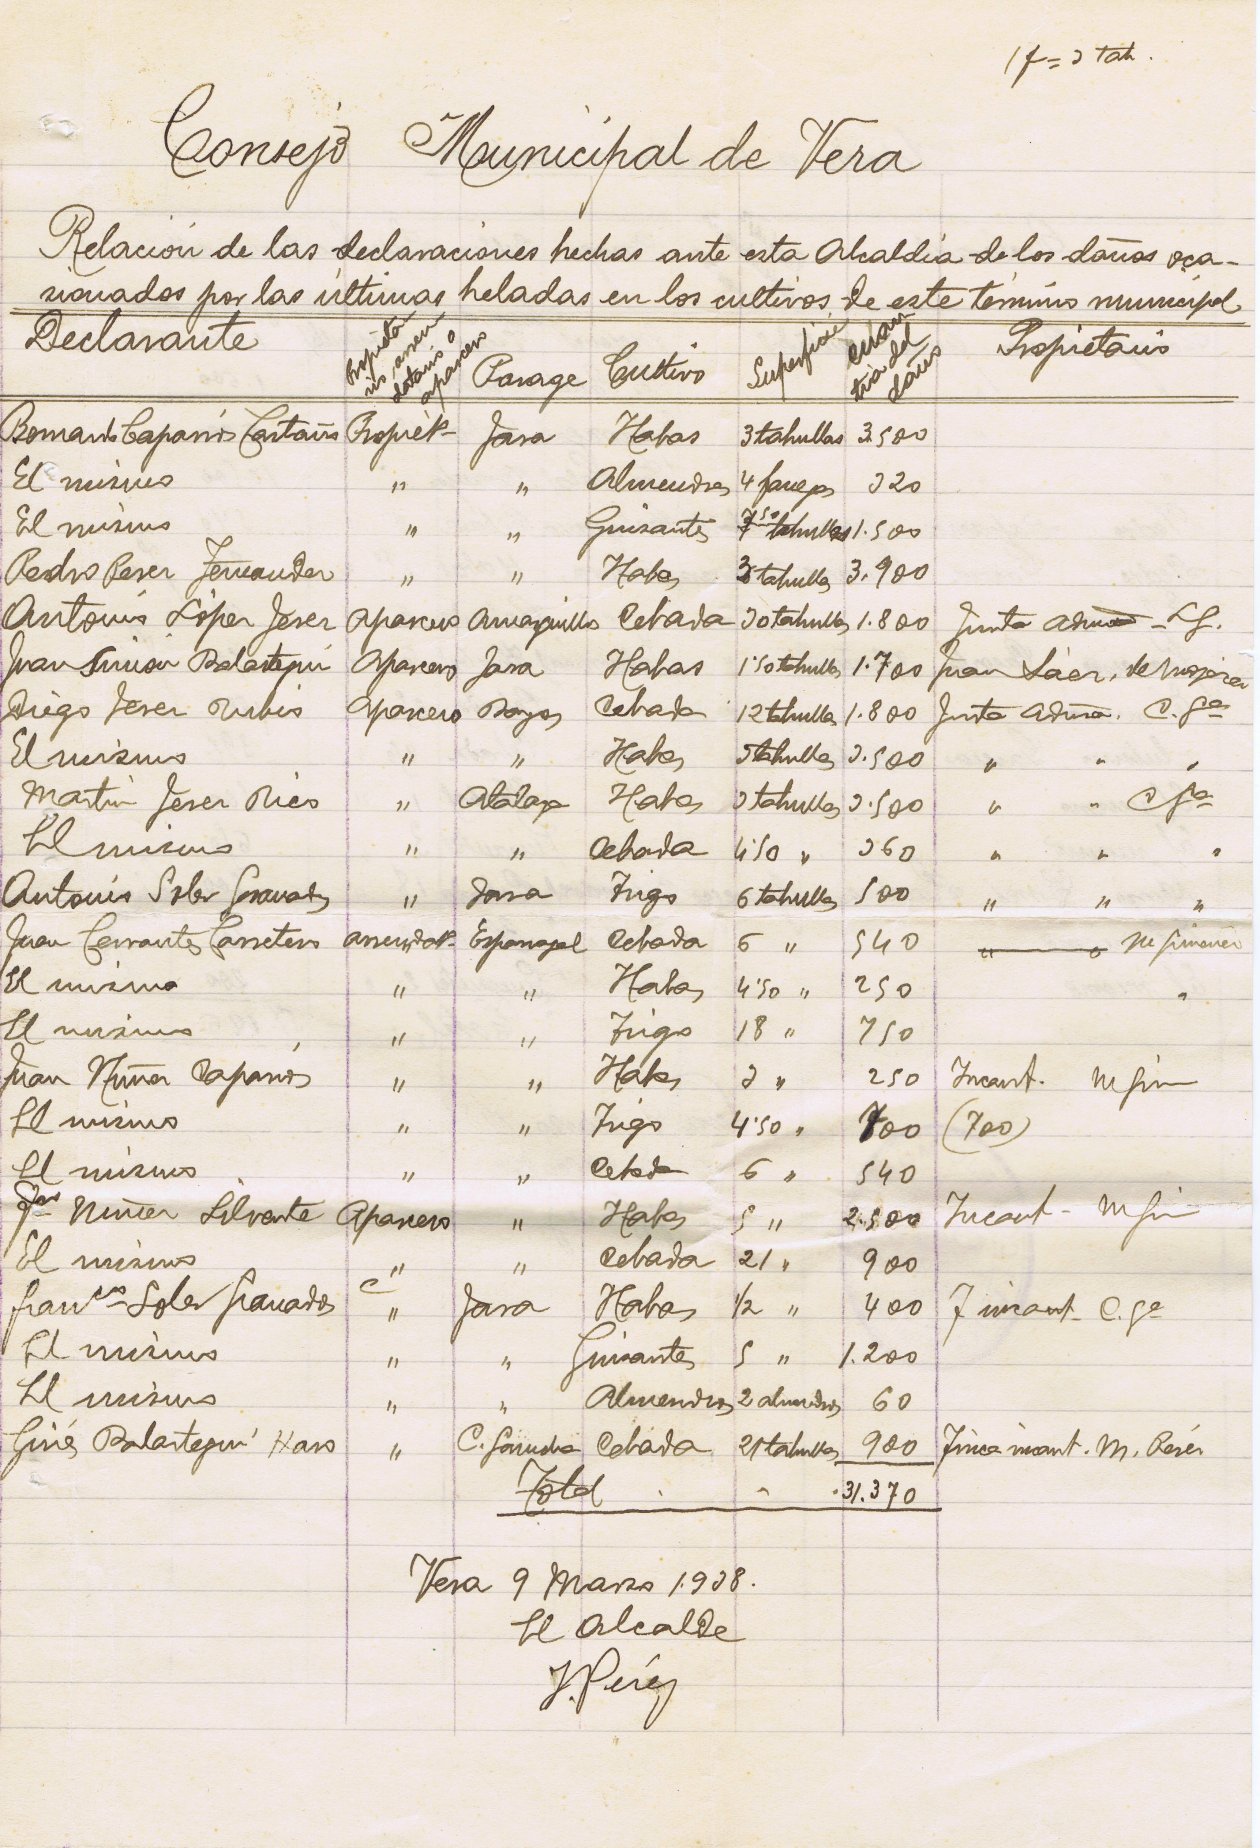 1 f = 3 tah.
Consejo Municipal de Vera
Relación de las declaraciones hechas ante esta Alcaldía de los daños oca-
sionados por las últimas heladas en los cultivos de este término municipal
Declarante Propieta rio, arren datario o aparcero Parage Cultivo Superficie cuan tía del daño Propietario
Bernardo Caparrós Castaño Propietº Jara Habas 3 tahullas 3.500
El mismo " " Almendros 4 fanegas 320
El mismo " " Guisantes tahullas 1.500
Pedro Perez Fernandez " " Habas 3 tahullas 3.900
Antonio López Jerez Aparcero Amarguillo Cebada 30 tahullas 1.800 Junta Adm
Juan Simón Balastegui Aparcero Jara Habas 1'50 tahullas 1.700 Juan Sáez, de
Diego Jerez Rubio Aparcero Cebada 12 tahullas 1.800 Junta Adma. C. Gª
El mismo " " Habas 3 tahullas 3.500 " " "
Martín Jerez Rico " Atalaya Habas 3 tahullas 3.500 " " C Gª
El mismo " " Cebada 4'50 " 360 " " "
Antonio Soler Granados " Jara Trigo 6 tahullas 500 " " "
Juan Cervantes Carretero arrendatº Esparragal Cebada 6 " 540 " " M Gimenez
El mismo " " Habas 4'50 " 250 "
El mismo " " Trigo 18 " 750
Juan Núñez Caparrós " " Habas 3 " 250 Incaut. M Gim
El mismo " " Trigo 4'50 " 700 (700)
El mismo " " Cebada 6 " 540
Núñez Silvente Aparcero " Habas 5 " 2.500 Incaut - M Gim
El mismo " " Cebada 21 " 900
Francco Soler Granados " Jara Habas 1/2 " 400 F incaut - C. Gª
El mismo " " Guisantes 5 " 1.200
El mismo " " Almendros 2 almendros 60
Ginés Balastegui Haro " C. Cebada 21 tahullas 900 Finca incaut. M. Perez
Total . . . 31.370
Vera 9 Marzo 1.938.
El Alcalde
J. Pérez